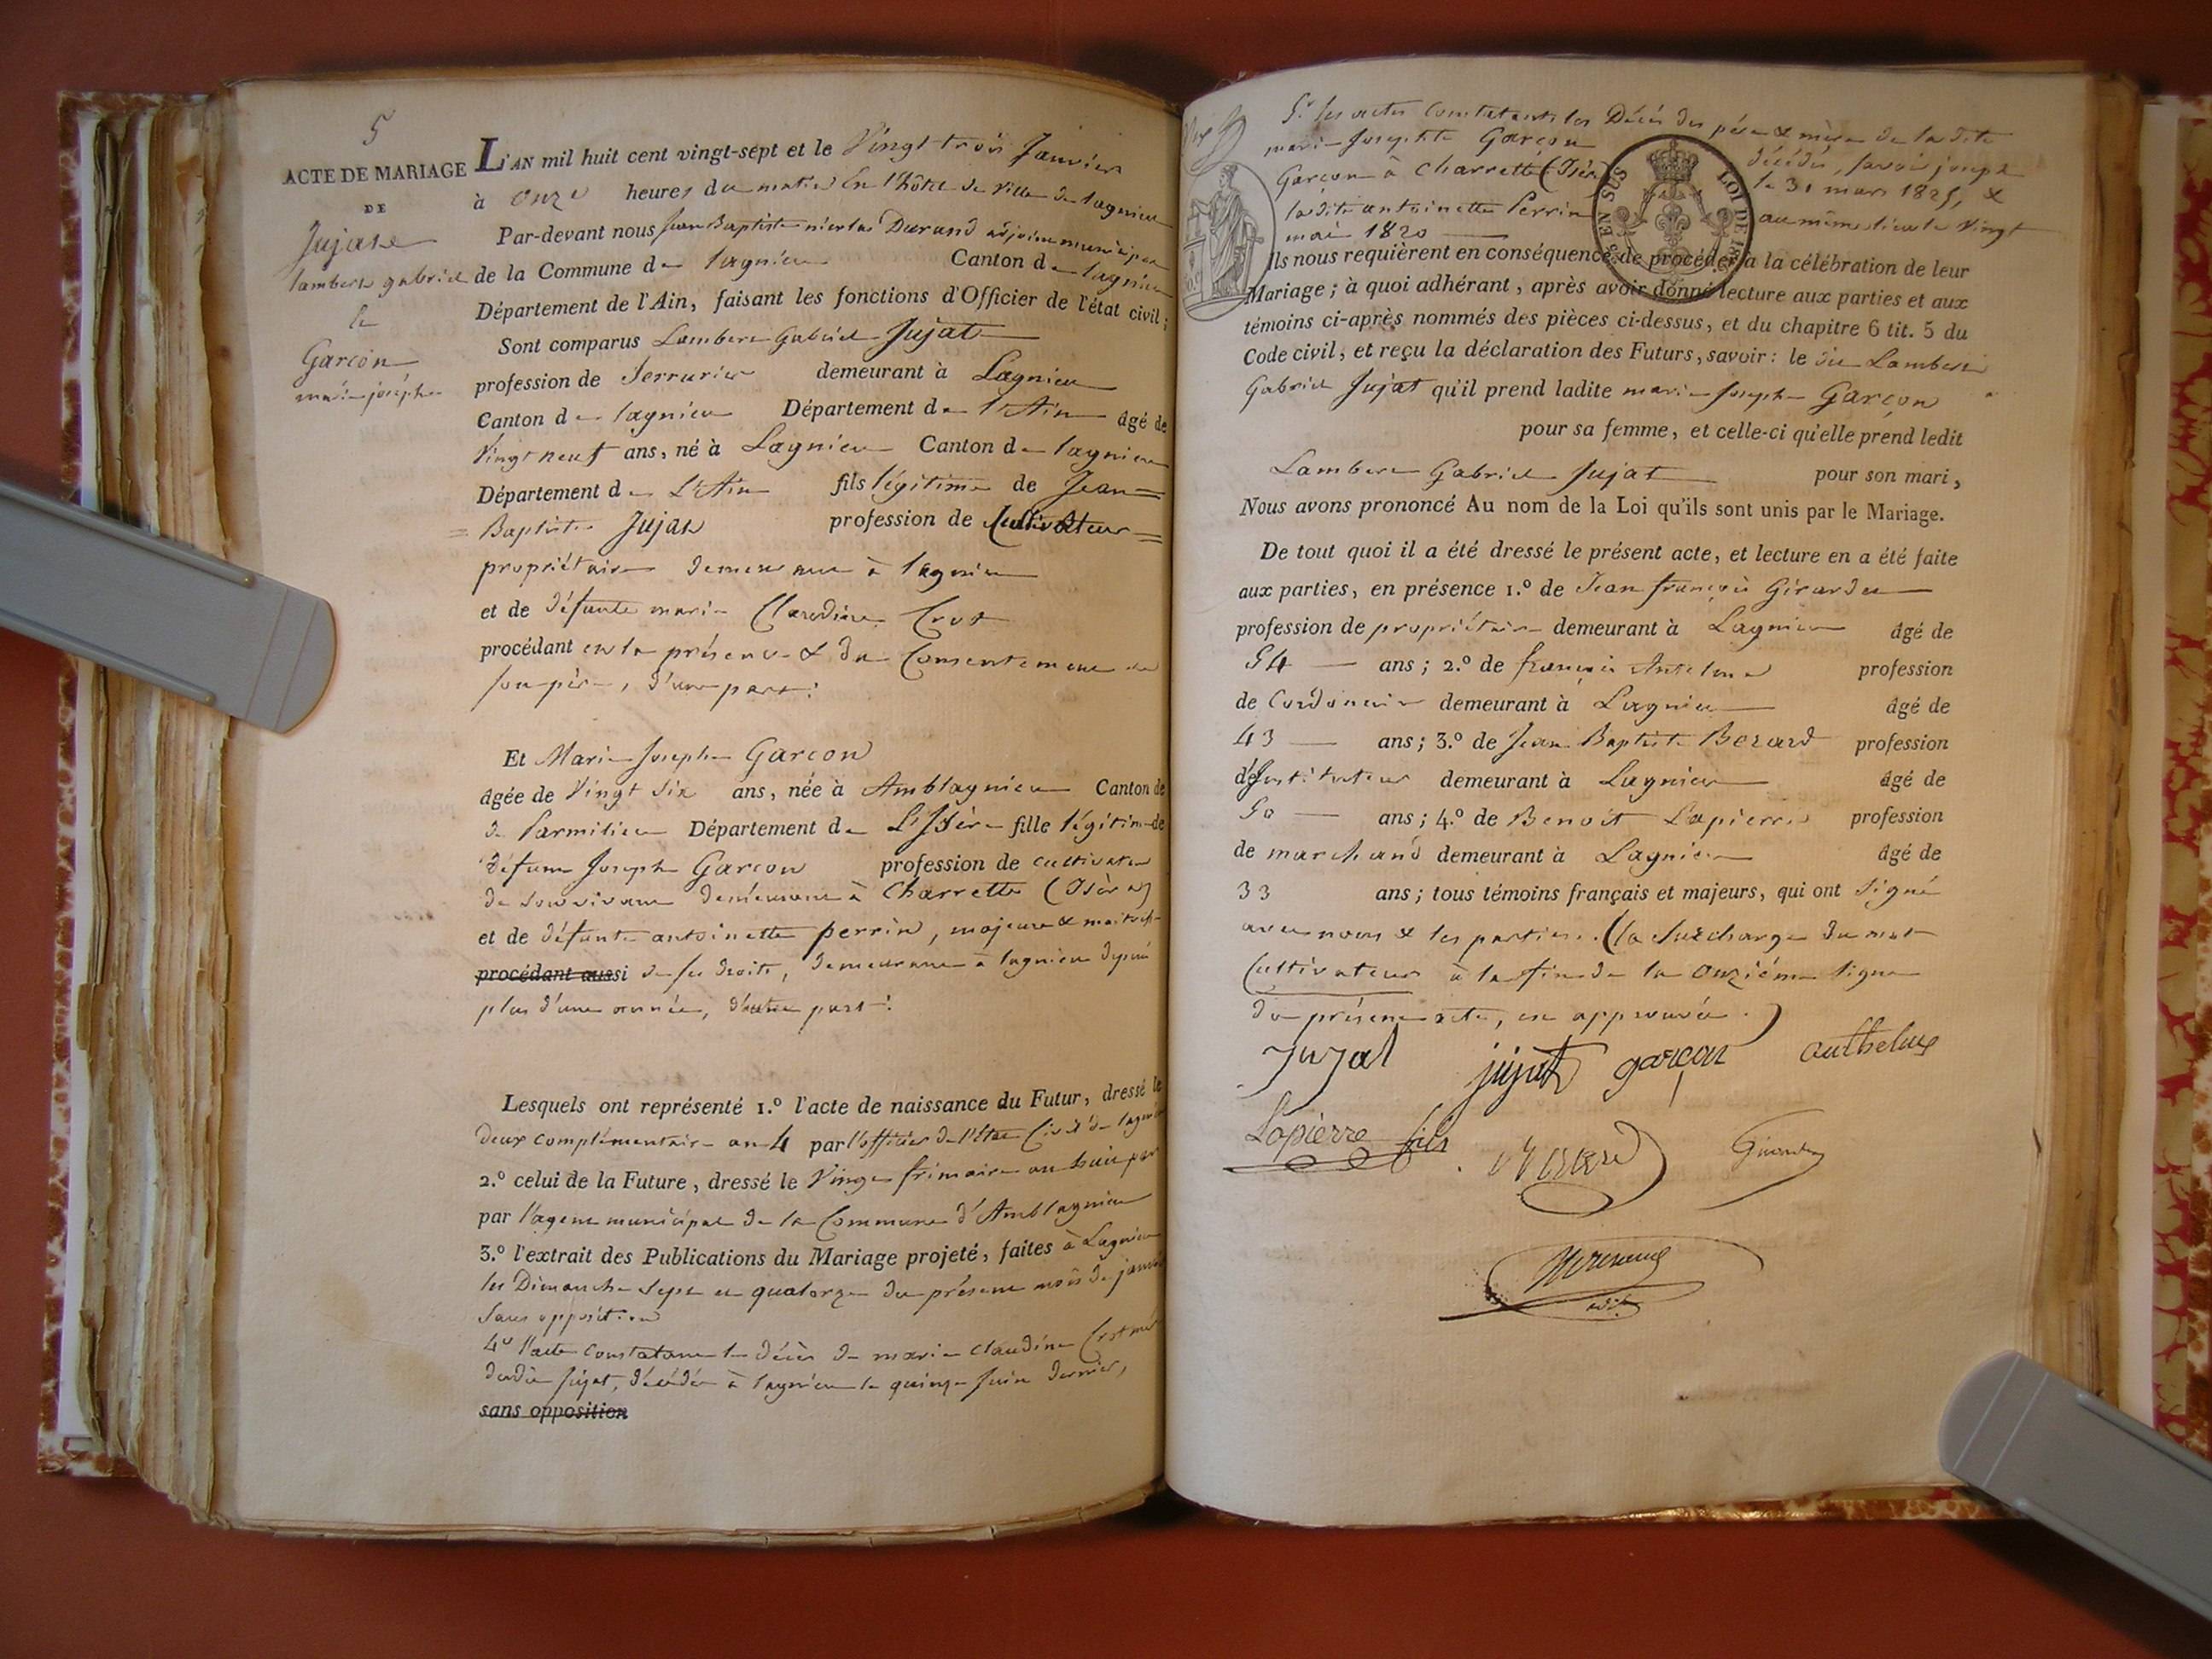 5
ACTE DE MARIAGE
DE
Jujat
lambert gabriel
&
Garcon
marie josephe
L'AN mil huit cent vingt-sept et le Vingt trois Janvier
à onze heures du matin En l'hôtel de Ville de lagnieu
Par-devant nous Jean Baptiste nicolas Durand adjoint municipal
de la Commune de lagnieu Canton de lagnieu
Département de l'Ain, faisant les fonctions d'Officier de l'état civil;
Sont comparus Lambert Gabriel Jujat
profession de Serrurier demeurant à Lagnieu
Canton de lagnieu Département de l'Ain âgé de
Vingt neuf ans, né à Lagnieu Canton de lagnieu
Département de L'Ain fils légitime de Jean =
= Baptiste Jujat profession de Cultivateur =
propriétaire demeurant à lagnieu
et de défunte marie Claudine Crost
procédant en la présence & du Consentement de
son père, d'une part:
Et Marie Josephe Garcon
âgée de Vingt Six ans, née à Amblagnieu Canton de
de Parmilieu Département de L'Isère fille légitime de
défunt Joseph Garcon profession de cultivateur
de son vivant demeurant à Charrette (Isère)
et de défunte antoinette perrin, majeure & maitresse
procédant aussi de ses droits, demeurant à lagnieu depuis
plus d'une année, d'autre part:
Lesquels ont représenté 1.º l'acte de naissance du Futur, dressé le
deux complémentaire an 4 par l'officier de l'état Civil de lagnieu
2.º celui de la Future, dressé le Vingt frimaire an huit par
par l'agent municipal de la Commune d'Amblagnieu
3.º l'extrait des Publications du Mariage projeté, faites à Lagnieu
les Dimanche Sept et quatorze du présent mois de janvier
Sans opposition
4º l'acte constatant le décès de marie claudine Crost mère
dudit Jujat, décédée à lagnieu le quinze Juin dernier,
sans opposition
5º les actes constatants les Décès des père & mère de la dite
marie Josephte Garçon décédés, savoir joseph
Garçon à Charrette (Isère) le 31 mars 1825, &
ladite antoinette Perrin au même lieu le Vingt
mai 1820
EN SUS LOI DE 18
Ils nous requièrent en conséquence de procéder à la célébration de leur
Mariage; à quoi adhérant, après avoir donné lecture aux parties et aux
témoins ci-après nommés des pièces ci-dessus, et du chapitre 6 tit. 5 du
Code civil, et reçu la déclaration des Futurs, savoir: le dit Lambert
Gabriel Jujat qu'il prend ladite marie Josephe Garçon
pour sa femme, et celle-ci qu'elle prend ledit
Lambert Gabriel Jujat pour son mari,
Nous avons prononcé Au nom de la Loi qu'ils sont unis par le Mariage.
De tout quoi il a été dressé le présent acte, et lecture en a été faite
aux parties, en présence 1.º de Jean françois Girardet
profession de propriétaire demeurant à Lagnieu âgé de
54 ans; 2.º de françois Antelme profession
de Cordonnier demeurant à Lagnieu âgé de
43 ans; 3.º de Jean Baptiste Berard profession
d'Instituteur demeurant à Lagnieu âgé de
50 ans; 4.º de Benoit Lapierre profession
de marchand demeurant à Lagnieu âgé de
33 ans; tous témoins français et majeurs, qui ont Signé
avec nous & les parties. (la Surcharge du mot
Cultivateur à la fin de la onzième ligne
du présent acte, est approuvée.)
Jujat jujat garçon anthelme
Lapierre fils